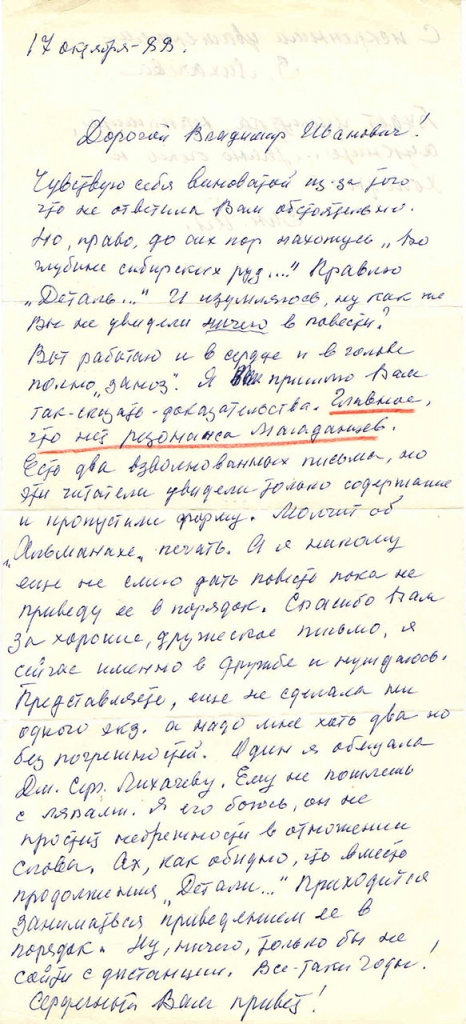 17 октября-88.
Дорогой Владимир Иванович!
Чувствую себя виноватой из-за того
что не ответила Вам обстоятельно.
Но, право, до сих пор нахожусь „во
глубине сибирских руд..." Правлю
„Деталь..." И изумляюсь, ну как же
Вы не увидели ничего в повести?
Вот работаю и в сердце и в голове
полно „заноз". Я пришлю Вам
так-сказать-доказательства. Главное,
что нет резонанса Магаданцев.
Есть два взволнованных письма, но
эти читатели увидели только содержание
и пропустили форму. Молчит об
„Альманахе„ печать. А я никому
еще не смею дать повесть пока не
приведу ее в порядок. Спасибо Вам
за хорошие, дружеское письмо, я
сейчас именно в дружбе и нуждаюсь.
Представляете, еще не сделала ни
одного экз. а надо мне хоть два но
без погрешностей. Один я обещала
Дм. Серг. Лихачеву. Ему не пошлешь
с ляпами. Я его боюсь, он не
простит небрежности в отношении
слова. Ах, как обидно, что вместо
продолжения „Детали..." Приходится
заниматься приведением ее в
порядок. Ну, ничего, только бы не
сойти с дистанции. Все-таки годы!
Сердечный Вам привет!